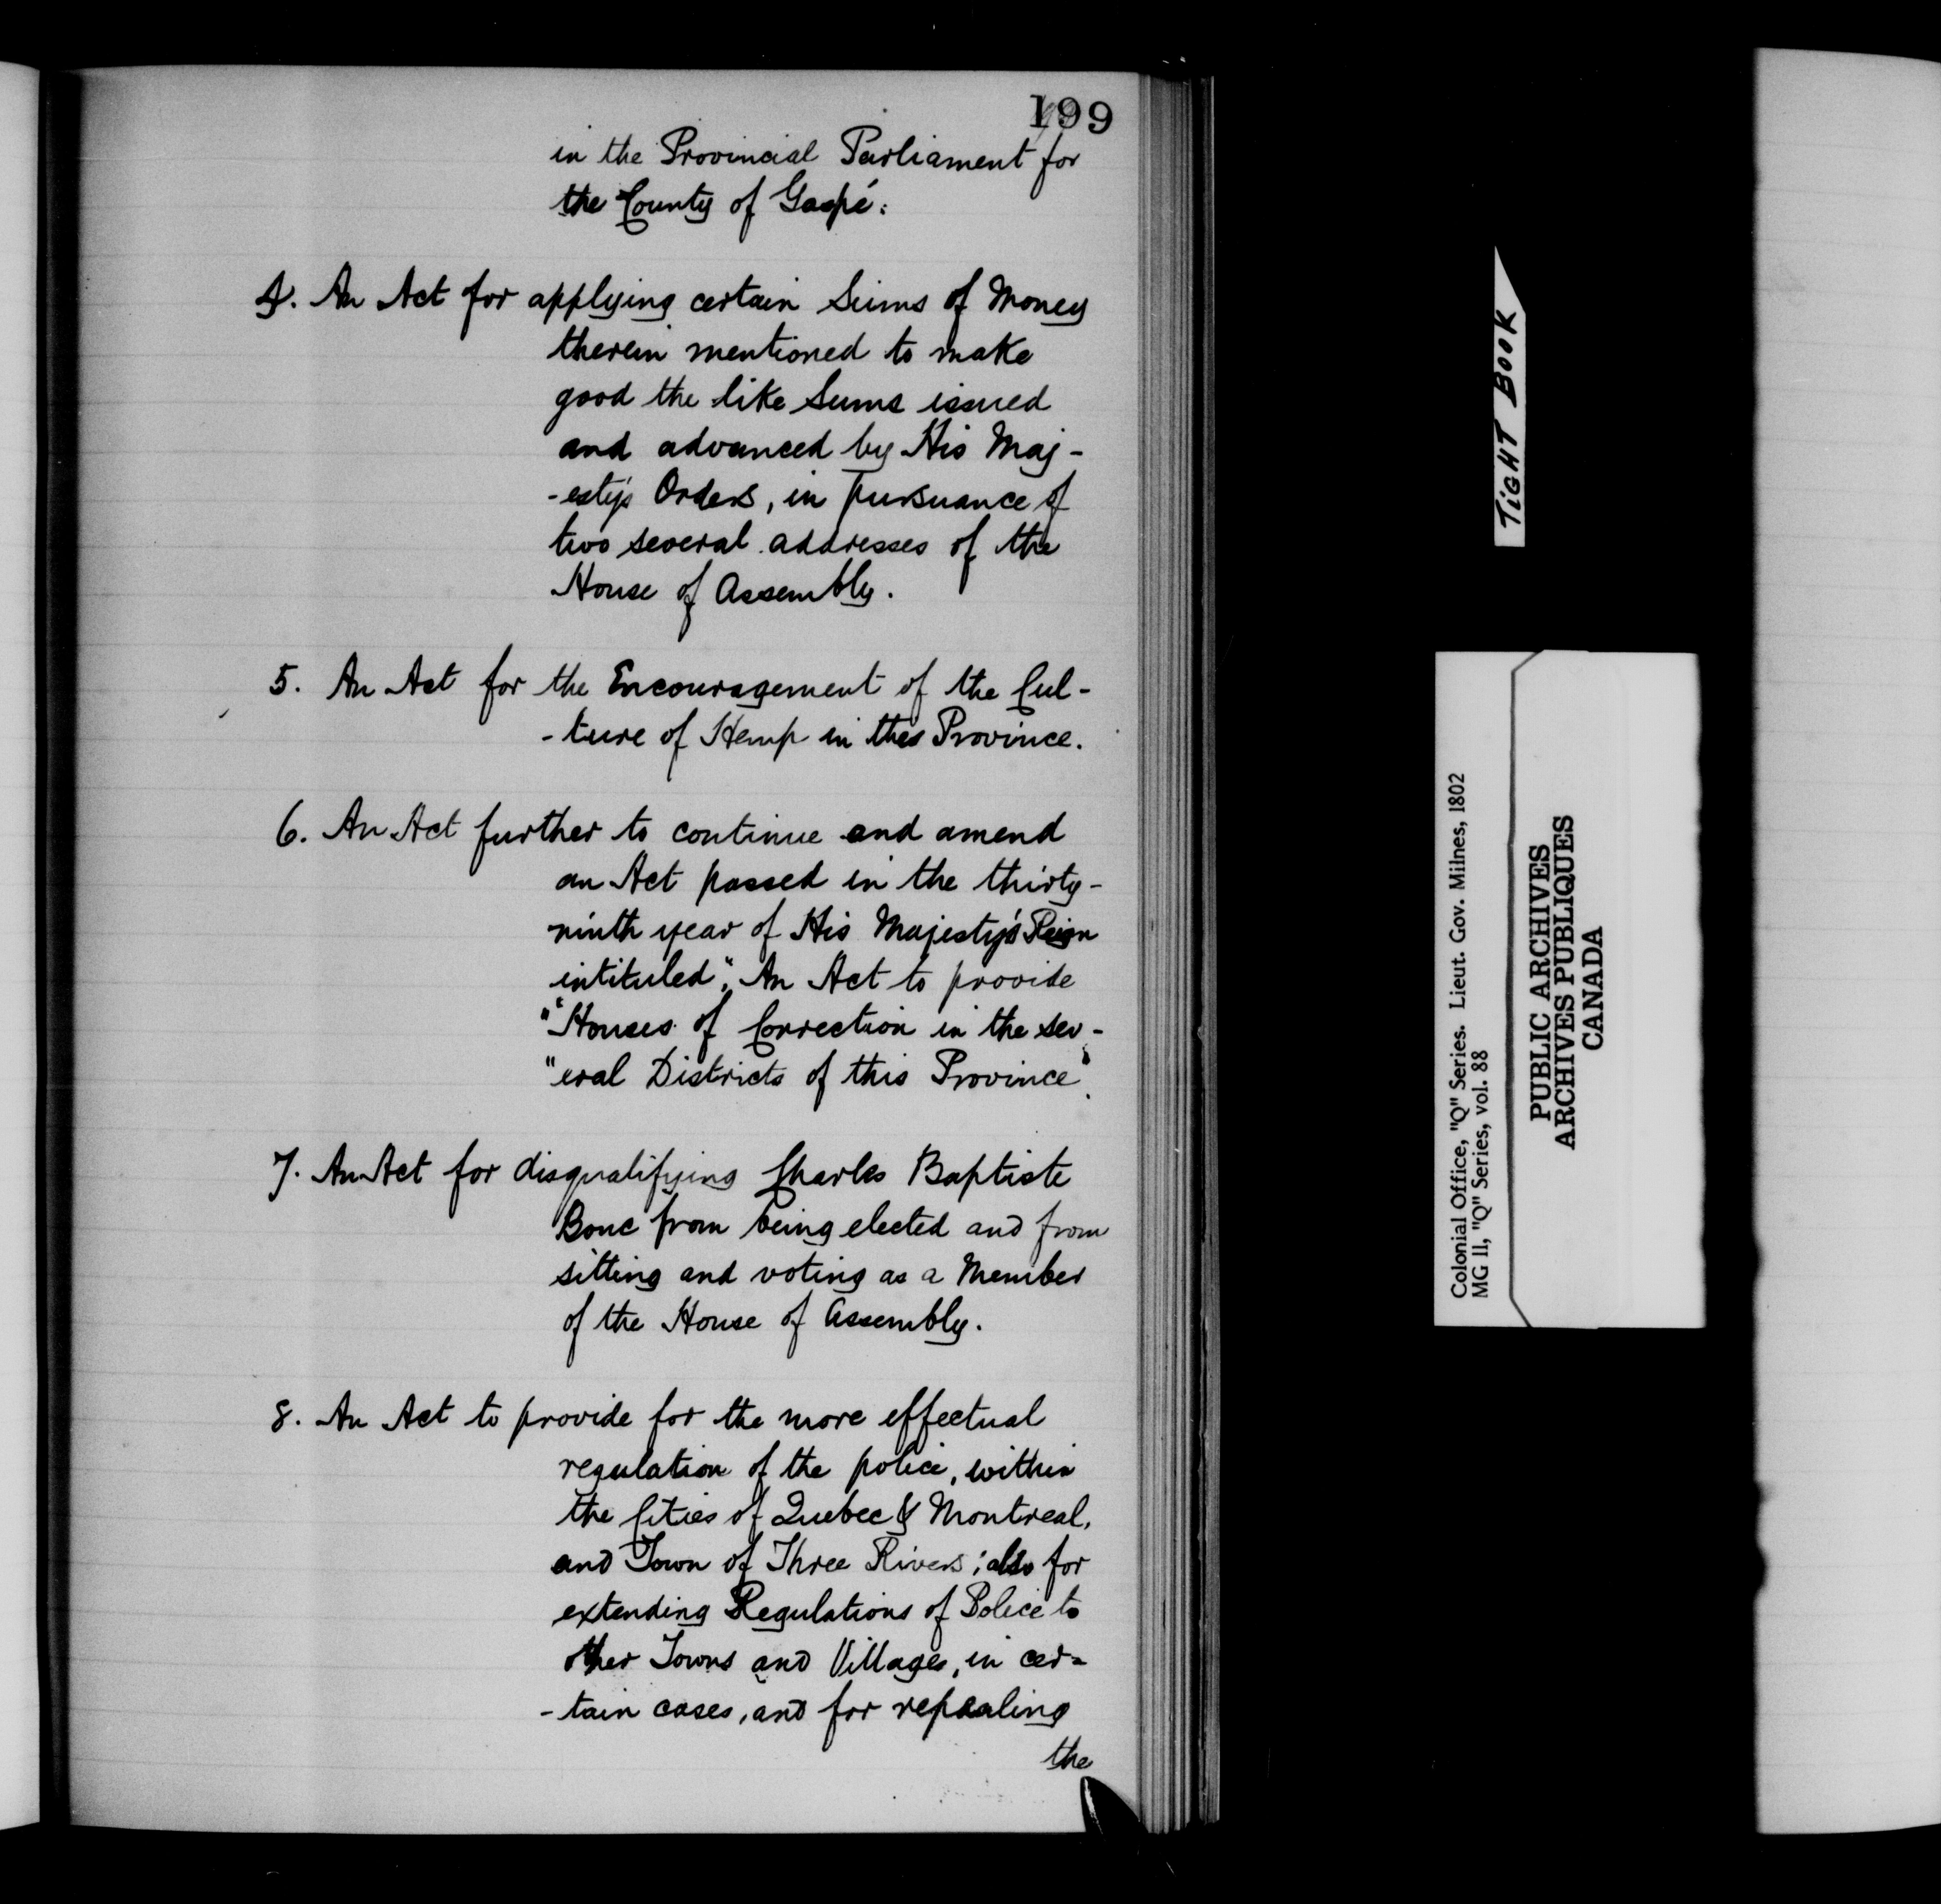 199
in the Provincial Parliament for
the County of Gaspé:
4. An Act for applying certain Sums of Money
therein mentioned to make
good the like Sums issued
and advanced by His Maj-
-esty's Orders, in pursuance of
two several addresses of the
House of Assembly.
5. An Act for the Encouragement of the Cul-
-ture of Hemp in this Province.
6. An Act further to continue and amend
an Act passed in the thirty-
ninth year of His Majesty's Reign
intituled "An Act to provide
"Houses of Correction in the sev-
"eral Districts of this Province".
7. An Act for disqualifying Charles Baptiste
Bouc from being elected and from
sitting and voting as a Member
of the House of Assembly.
8. An Act to provide for the more effectual
regulation of the police, within
the Cities of Quebec & Montreal,
and Town of Three Rivers; also for
extending Regulations of Police to
other Towns and Villages, in cer-
-tain cases, and for repealing
the
TIGHT BOOK
Colonial Office, "Q" Series. Lieut. Gov. Milnes, 1802
MG 11, "Q" Series, vol. 88
PUBLIC ARCHIVES
ARCHIVES PUBLIQUES
CANADA